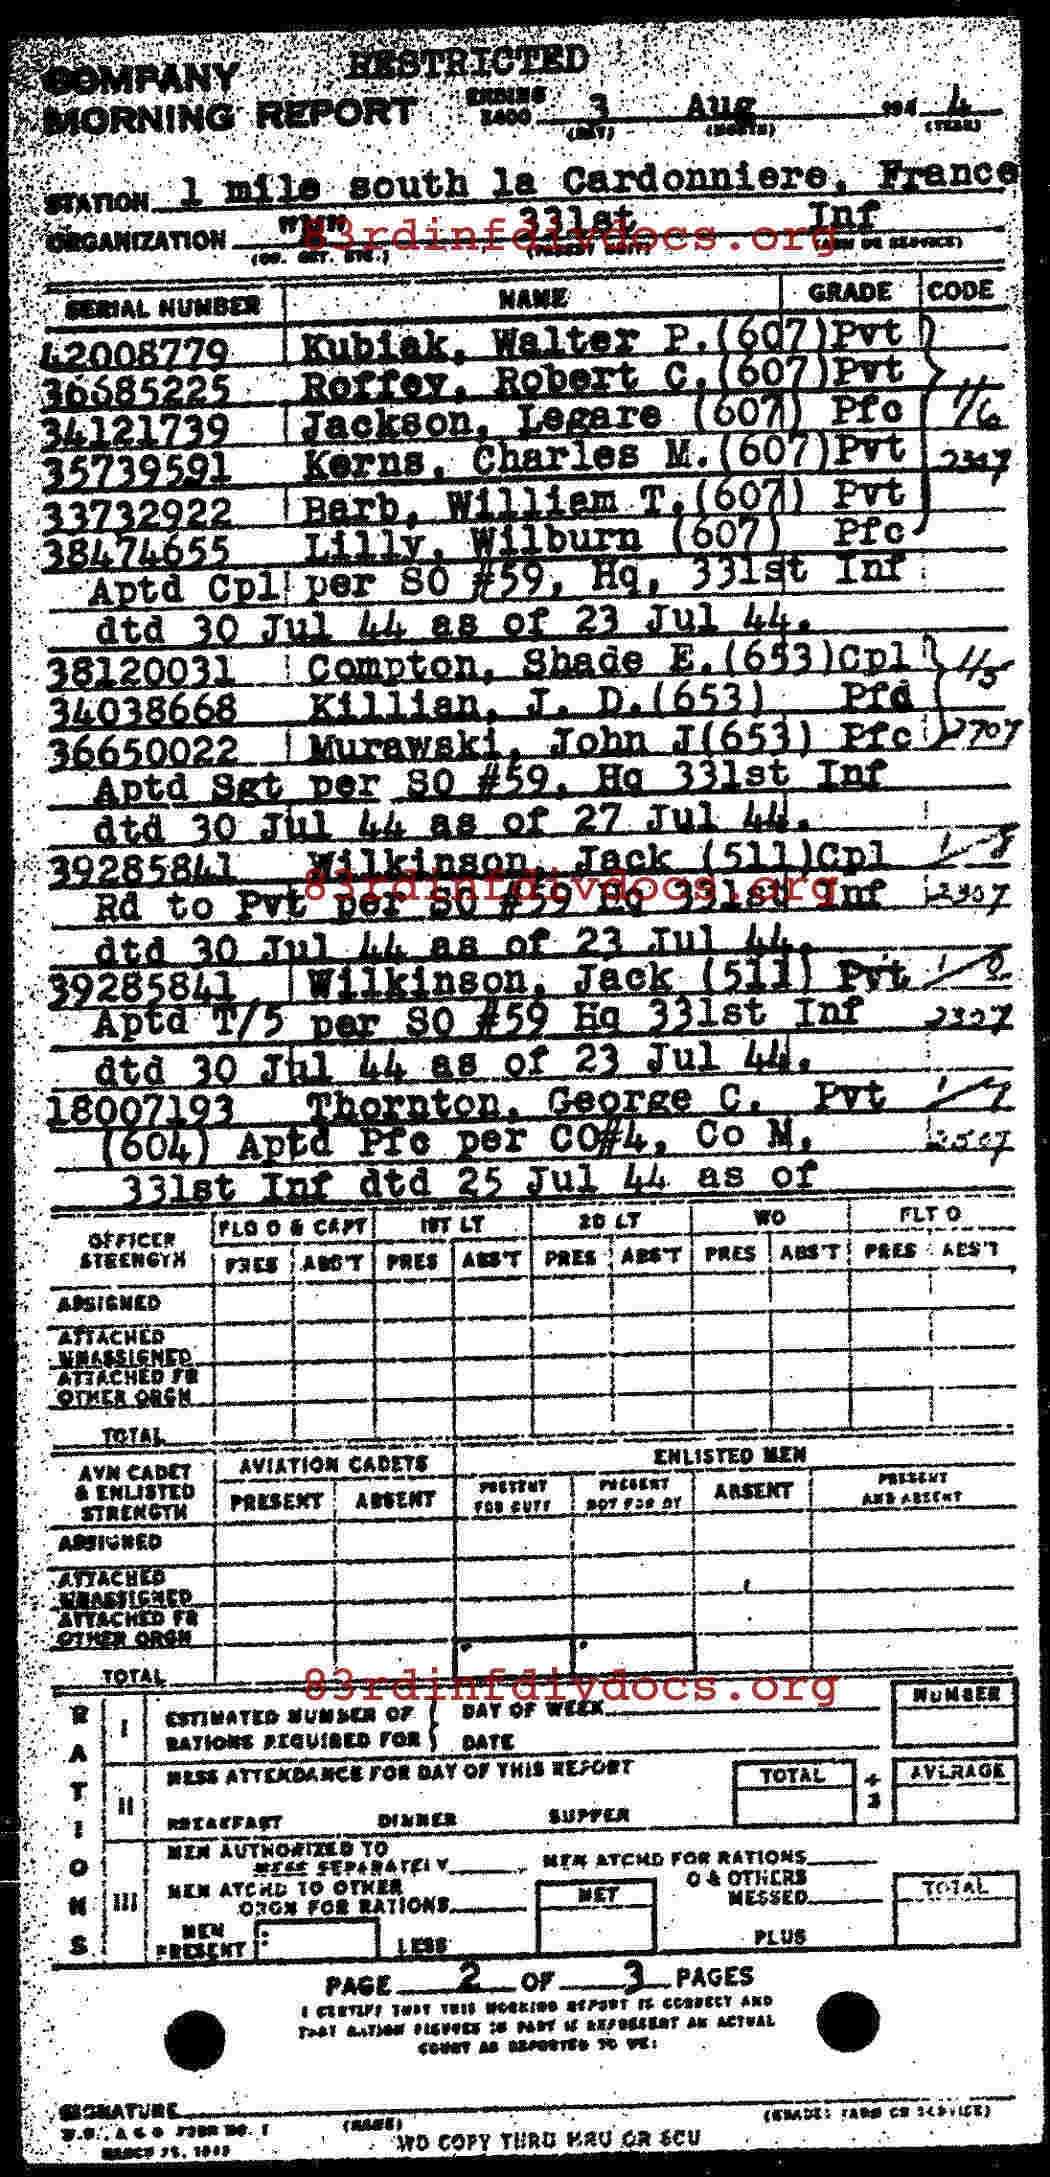 RESTRICTED
COMPANY
MORNING REPORT ENDING 2400 3 Aug 194 4
(DAY) (MONTH) (YEAR)
STATION 1 mile south la Cardonniere, France
ORGANIZATION "M" 331st Inf
83rdinfdivdocs.org
(CO. DET. ETC.) (PARENT UNIT) (ARM OR SERVICE)
SERIAL NUMBER NAME GRADE CODE
42008779 Kubiak, Walter P.(607)Pvt
36685225 Roffey, Robert C.(607)Pvt
34121739 Jackson, Legare (607) Pfc 1/6
35739591 Kerns, Charles M.(607)Pvt 2307
33732922 Barb, William T.(607) Pvt
38474655 Lilly, Wilburn (607) Pfc
Aptd Cpl per SO #59, Hq, 331st Inf
dtd 30 Jul 44 as of 23 Jul 44.
38120031 Compton, Shade E.(653)Cpl 1/5
34038668 Killian, J. D.(653) Pfc
36650022 Murawski, John J(653) Pfc 2707
Aptd Sgt per SO #59, Hq 331st Inf
dtd 30 Jul 44 as of 27 Jul 44.
39285841 Wilkinson, Jack (511)Cpl 1/8
83rdinfdivdocs.org
Rd to Pvt per SO #59 Hq 331st Inf 2307
dtd 30 Jul 44 as of 23 Jul 44.
39285841 Wilkinson, Jack (511) Pvt
Aptd T/5 per SO #59 Hq 331st Inf 2307
dtd 30 Jul 44 as of 23 Jul 44.
18007193 Thornton, George C. Pvt 1/7
(604) Aptd Pfc per CO#4, Co M, 2507
331st Inf dtd 25 Jul 44 as of
OFFICER STRENGTH FLD O & CAPT 1ST LT 2D LT WO FLT O
PRES ABS'T PRES ABS'T PRES ABS'T PRES ABS'T PRES ABS'T
ASSIGNED
ATTACHED UNASSIGNED
ATTACHED FR OTHER ORGN
TOTAL
AVN CADET & ENLISTED STRENGTH AVIATION CADETS ENLISTED MEN
PRESENT ABSENT PRESENT FOR DUTY PRESENT NOT FOR DY ABSENT PRESENT AND ABSENT
ASSIGNED
ATTACHED UNASSIGNED
ATTACHED FR OTHER ORGN
TOTAL
83rdinfdivdocs.org
RATIONS
I ESTIMATED NUMBER OF RATIONS REQUIRED FOR DAY OF WEEK NUMBER
DATE
II MESS ATTENDANCE FOR DAY OF THIS REPORT TOTAL ÷ 3 AVERAGE
BREAKFAST DINNER SUPPER
III MEN AUTHORIZED TO MESS SEPARATELY MEN ATCHD FOR RATIONS
MEN ATCHD TO OTHER ORGN FOR RATIONS NET O & OTHERS MESSED TOTAL
MEN PRESENT LESS PLUS
PAGE 2 OF 3 PAGES
I CERTIFY THAT THIS MORNING REPORT IS CORRECT AND
THAT RATION FIGURES IN PART III REPRESENT AN ACTUAL
COUNT AS REPORTED TO ME:
SIGNATURE
(NAME) (GRADE) (ARM OR SERVICE)
W.D., A G O FORM NO. 1
MARCH 25, 1943
WD COPY THRU MRU OR SCU